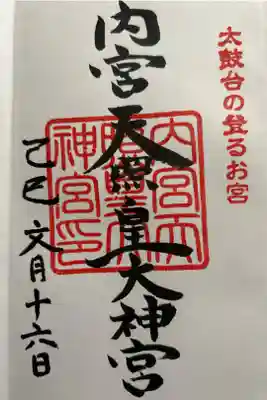 太鼓台の登るお宮
内宮天照皇大神宮
内宮天
照皇大
神宮印
己巳 文月十六日